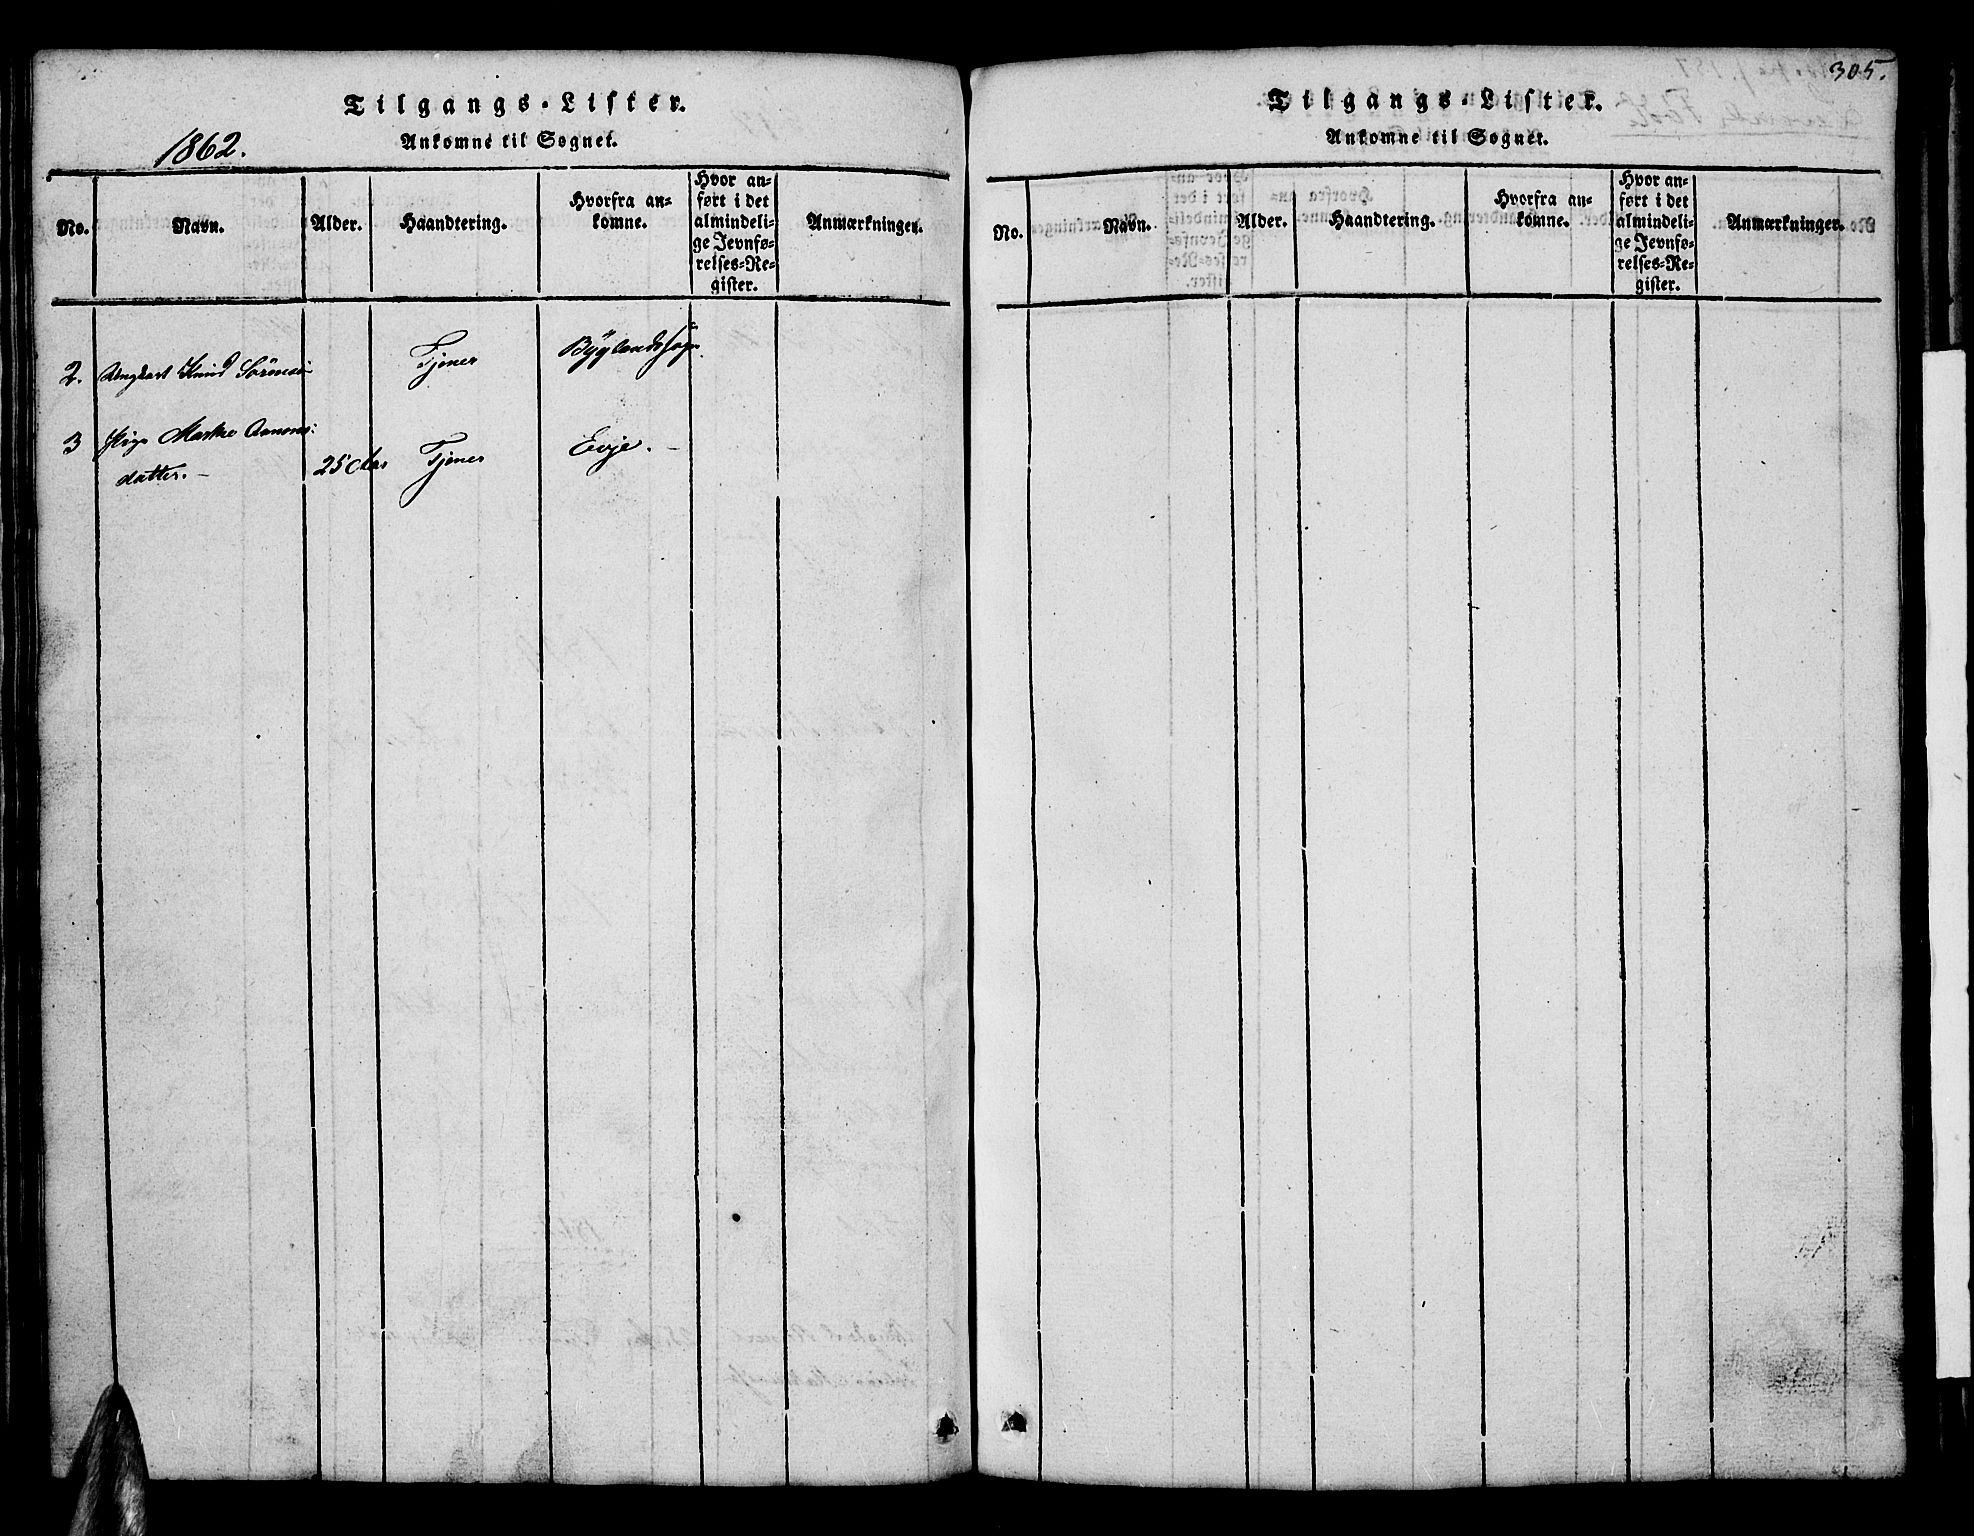 Tilgangs-Lister.
1862.
Ankomne til Sognet.
No.
Navn.
Alder.
Haandtering.
Hvorfra an-
komne.
Hvor an-
ført i det
almindeli-
ge Jevnfø-
relses-Re-
gister.
Anmærkninger.
2. Ungkarl Knud Sörensen Tjener Byglands sogn
3 Pige Marthe Aanons:
datter. – 25 Aar Tjener Evje. –
305.
Tilgangs-Lister.
Ankomne til Sognet.
No.
Navn.
Alder.
Haandtering.
Hvorfra an-
komne.
Hvor an-
ført i det
almindeli-
ge Jevnfø-
relses-Re-
gister.
Anmærkninger.